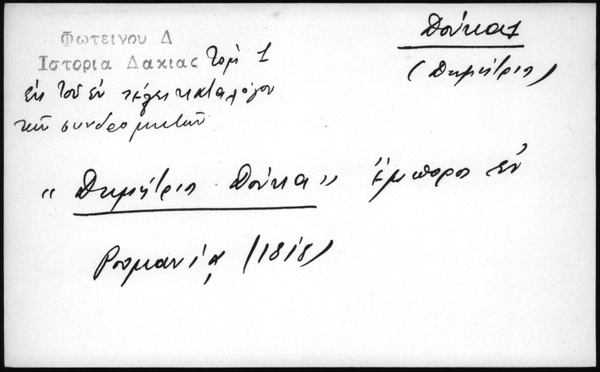 Φωτεινου Δ
Ιστορια Δακιας τομ 1
εκ του εν τέλει καταλόγου
των συνδρομητών
Δούκας
(Δημήτριος)
"Δημήτριος Δούκα" έμπορος εν
Ρουμανία (1818)